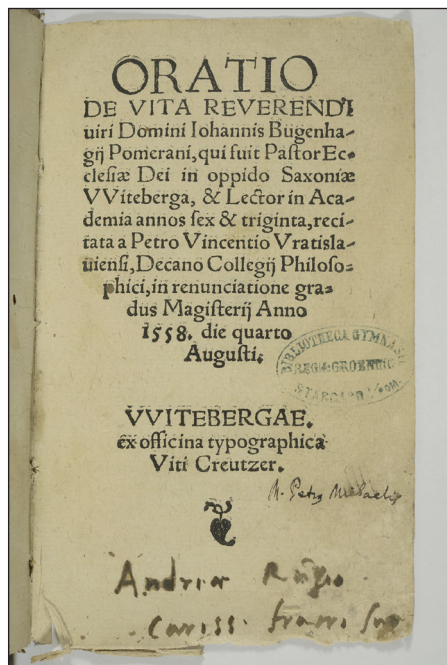 ORATIO
DE VITA REVERENDI
uiri Domini Iohannis Bugenha-
gij Pomerani, qui fuit Pastor Ec-
clesiæ Dei in oppido Saxoniæ
VViteberga, & Lector in Aca-
demia annos sex & triginta, reci-
tata a Petro Vincentio Vratisla-
uiensi, Decano Collegij Philoso-
phici, in renunciatione gra-
dus Magisterij Anno
1558. die quarto
Augusti.
BIBLIOTHECA GYMNASII
REGII GROENING
STARGARD
VVITEBERGAE.
ex officina typographica
Viti Creutzer.
M. Petro
Andreæ
Cariss. fratri suo